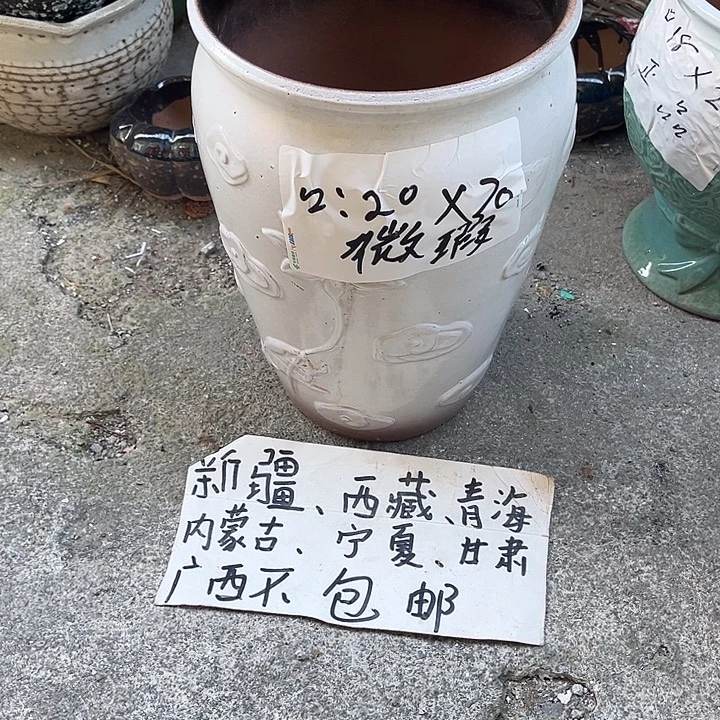 2:20×20
微瑕
18×2
新疆、西藏、青海
内蒙古、宁夏、甘肃
广西不包邮